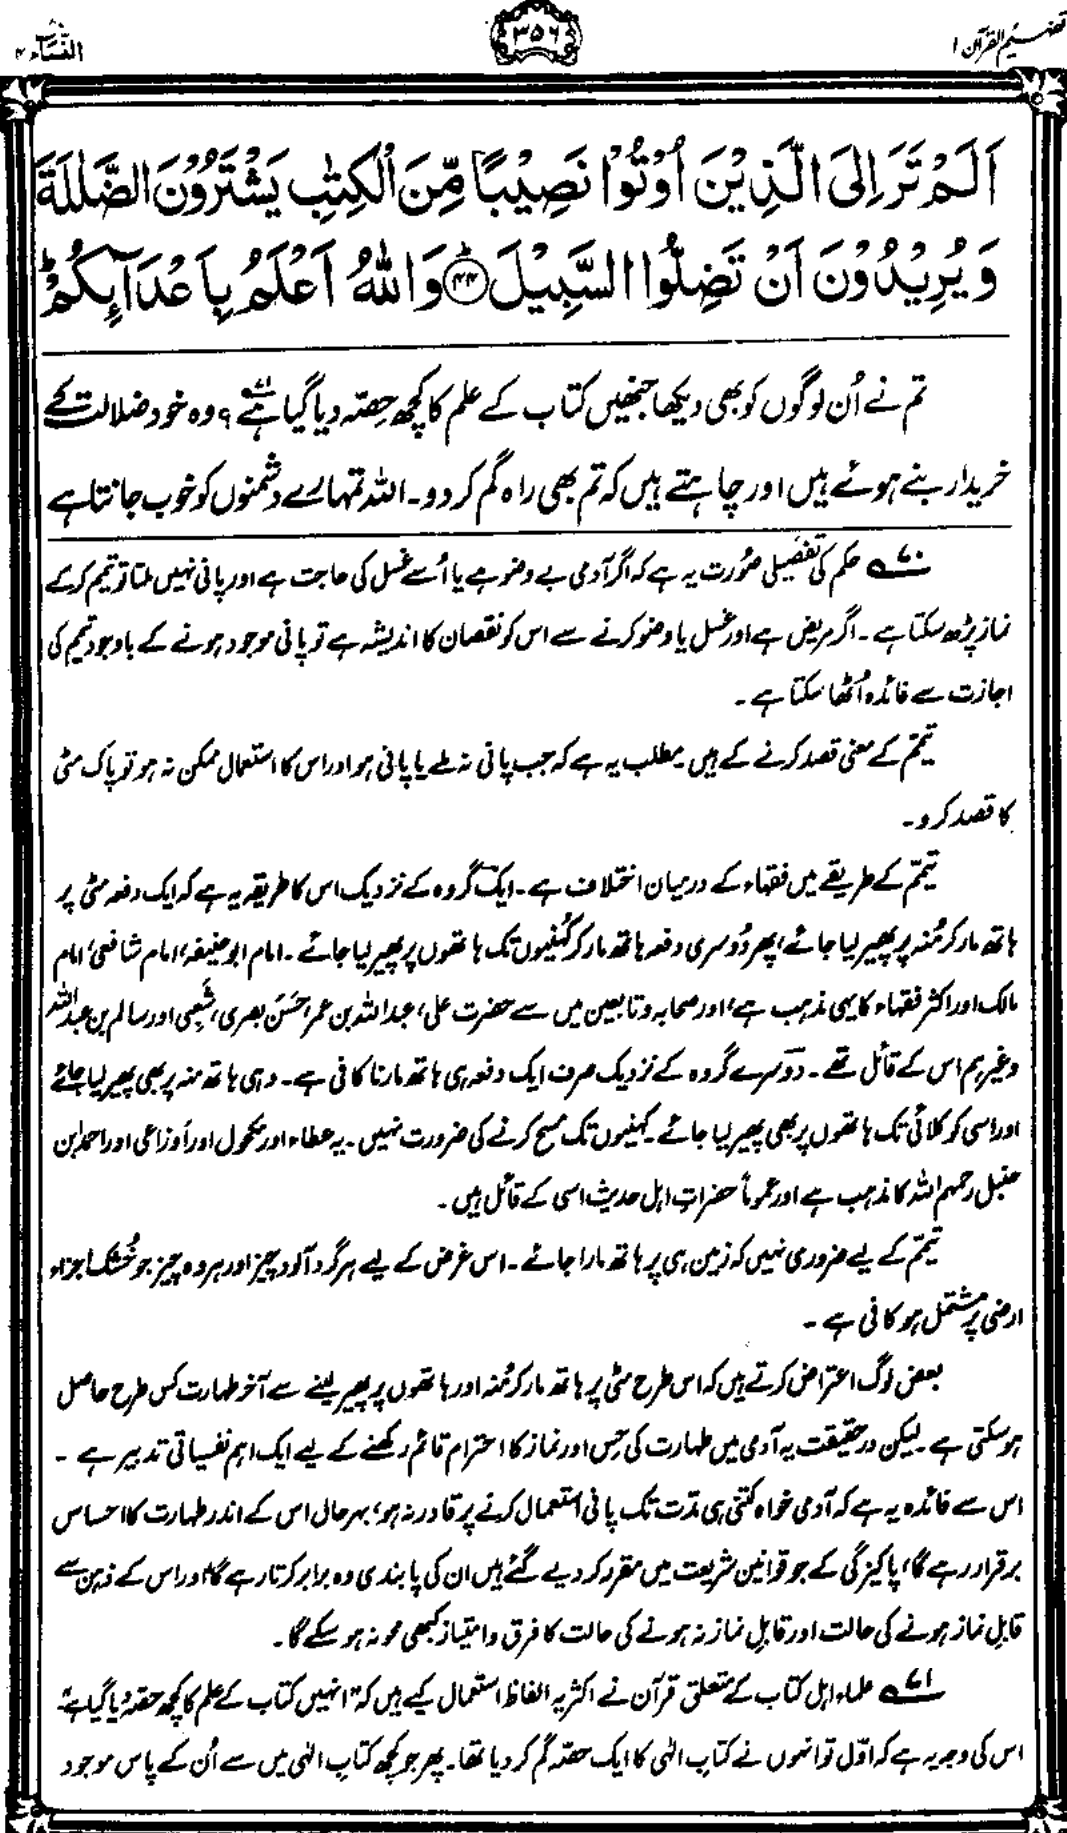 تفہیم القرآن ۱
۳۵۶
النساء ۴
اَلَمْ تَرَ اِلَى الَّذِيْنَ اُوْتُوْا نَصِيْبًا مِّنَ الْكِتٰبِ يَشْتَرُوْنَ الضَّلٰلَةَ
وَيُرِيْدُوْنَ اَنْ تَضِلُّوا السَّبِيْلَ ؕ﴿۴۴﴾ وَاللّٰهُ اَعْلَمُ بِاَعْدَآىِٕكُمْ ؕ
تم نے اُن لوگوں کو بھی دیکھا جنھیں کتاب کے علم کا کچھ حِصّہ دیا گیا ہے؟۷۱ وہ خود ضلالت کے
خریدار بنے ہوئے ہیں اور چاہتے ہیں کہ تم بھی راہ گم کر دو۔ اللہ تمہارے دشمنوں کو خوب جانتا ہے
۷۰ حکم کی تفصیلی صُورت یہ ہے کہ اگر آدمی بے وضو ہے یا اُسے غسل کی حاجت ہے اور پانی نہیں ملتا تو تیمم کر کے
نماز پڑھ سکتا ہے۔ اگر مریض ہے اور غسل یا وضو کرنے سے اس کو نقصان کا اندیشہ ہے تو پانی موجود ہونے کے باوجود تیمم کی
اجازت سے فائدہ اُٹھا سکتا ہے۔
تیمّم کے معنی قصد کرنے کے ہیں۔ مطلب یہ ہے کہ جب پانی نہ ملے یا پانی ہو اور اس کا استعمال ممکن نہ ہو تو پاک مٹی
کا قصد کرو۔
تیمّم کے طریقے میں فقہاء کے درمیان اختلاف ہے۔ ایک گروہ کے نزدیک اس کا طریقہ یہ ہے کہ ایک دفعہ مٹی پر
ہاتھ مار کر مُنہ پر پھیر لیا جائے، پھر دُوسری دفعہ ہاتھ مار کر کُہنیوں تک ہاتھوں پر پھیر لیا جائے۔ امام ابو حنیفہ، امام شافعی، امام
مالک اور اکثر فقہاء کا یہی مذہب ہے، اور صحابہ و تابعین میں سے حضرت علی، عبداللہ بن عمر، حَسَن بصری، شَعبِی اور سالم بن عبداللہ
وغیرہم اس کے قائل تھے۔ دوسرے گروہ کے نزدیک صرف ایک دفعہ ہی ہاتھ مارنا کافی ہے۔ وہی ہاتھ منہ پر بھی پھیر لیا جائے
اور اسی کو کلائی تک ہاتھوں پر بھی پھیر لیا جائے۔ کہنیوں تک مسح کرنے کی ضرورت نہیں۔ یہ عطاء اور مکحول اور اَوزاعی اور احمد ابن
حنبل رحمہم اللہ کا مذہب ہے اور عموماً حضراتِ اہلِ حدیث اسی کے قائل ہیں۔
تیمّم کے لیے ضروری نہیں کہ زمین ہی پر ہاتھ مارا جائے۔ اس غرض کے لیے ہر گرد آلود چیز اور ہر وہ چیز جو خُشک اجزاءِ
ارضی پر مشتمل ہو کافی ہے۔
بعض لوگ اعتراض کرتے ہیں کہ اس طرح مٹی پر ہاتھ مار کر مُنہ اور ہاتھوں پر پھیر لینے سے آخر طہارت کس طرح حاصل
ہوسکتی ہے۔ لیکن درحقیقت یہ آدمی میں طہارت کی حِس اور نماز کا احترام قائم رکھنے کے لیے ایک اہم نفسیاتی تدبیر ہے۔
اس سے فائدہ یہ ہے کہ آدمی خواہ کتنی ہی مدّت تک پانی استعمال کرنے پر قادر نہ ہو، بہرحال اس کے اندر طہارت کا احساس
برقرار رہے گا، پاکیزگی کے جو قوانین شریعت میں مقرر کر دیے گئے ہیں ان کی پابندی وہ برابر کرتا رہے گا، اور اس کے ذہن سے
قابلِ نماز ہونے کی حالت اور قابلِ نماز نہ ہونے کی حالت کا فرق و امتیاز کبھی محو نہ ہو سکے گا۔
۷۱ علماء اہلِ کتاب کے متعلق قرآن نے اکثر یہ الفاظ استعمال کیے ہیں کہ ”انہیں کتاب کے علم کا کچھ حصّہ دیا گیا ہے“۔
اس کی وجہ یہ ہے کہ اوّل تو انہوں نے کتابِ الٰہی کا ایک حصّہ گم کر دیا تھا۔ پھر جو کچھ کتابِ الٰہی میں سے اُن کے پاس موجود